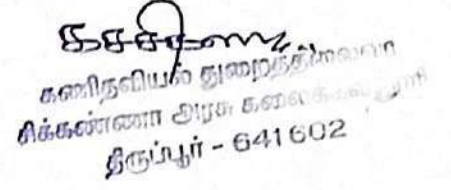 கணிதவியல் துறைத்தலைவர்
சிக்கண்ணா அரசு கலைக்கல்லூரி
திருப்பூர் - 641 602